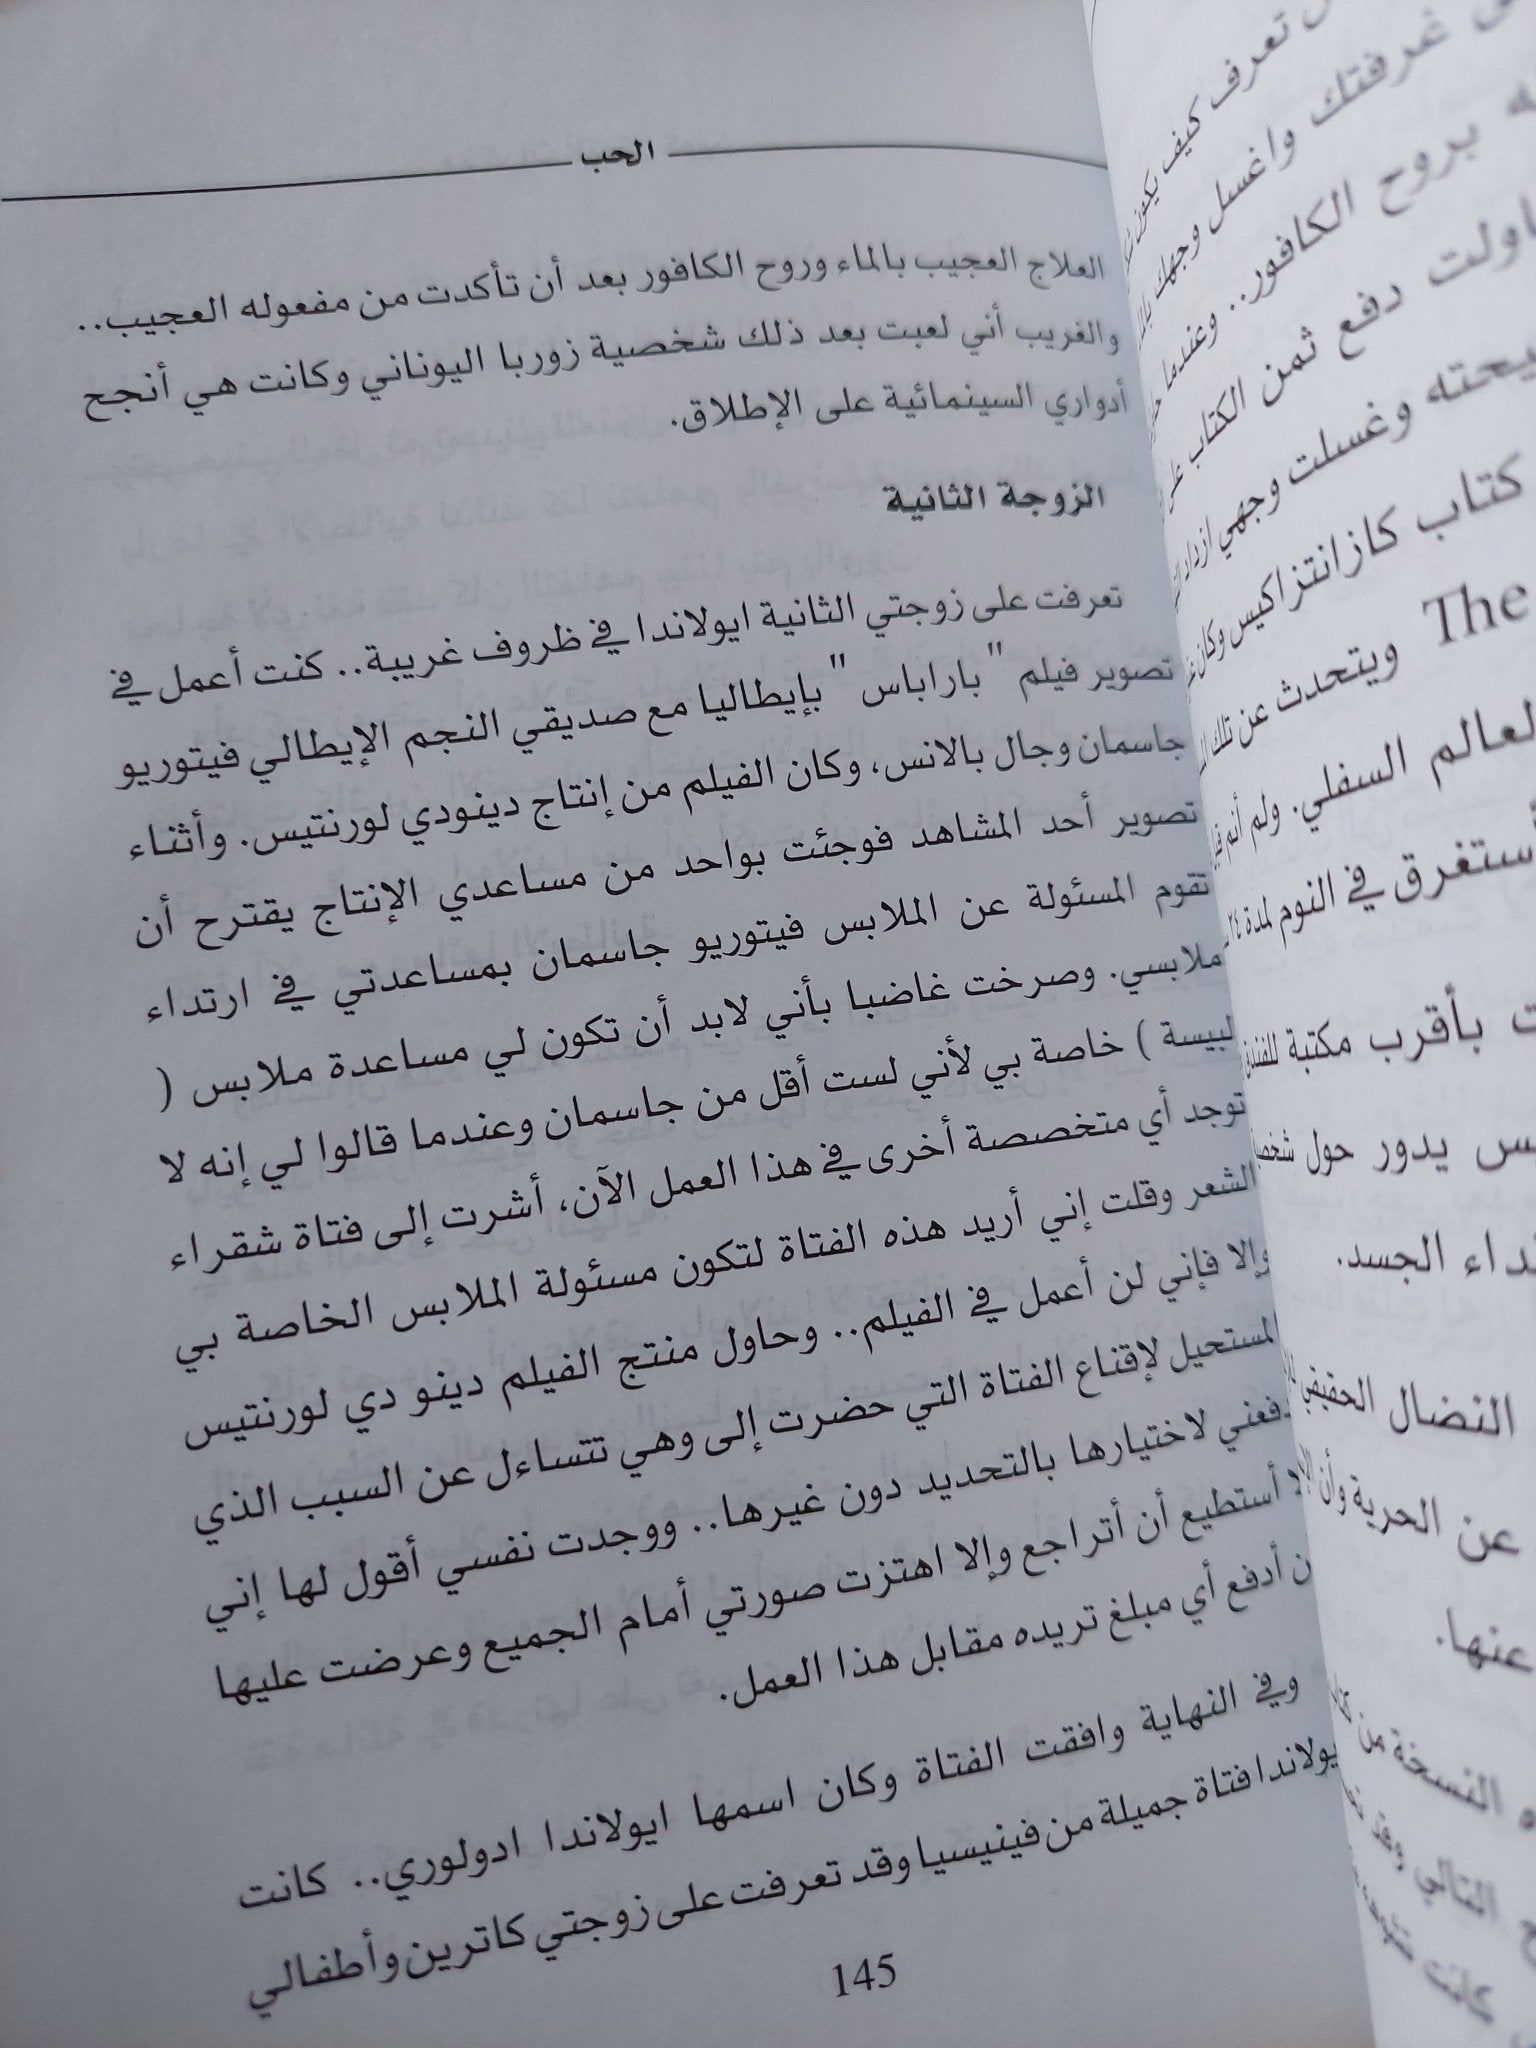 الحب
العلاج العجيب بالماء وروح الكافور بعد أن تأكدت من مفعوله العجيب..
والغريب أني لعبت بعد ذلك شخصية زوربا اليوناني وكانت هي أنجح
أدواري السينمائية على الإطلاق.
الزوجة الثانية
تعرفت على زوجتي الثانية ايولاندا في ظروف غريبة.. كنت أعمل في
تصوير فيلم "باراباس" بإيطاليا مع صديقي النجم الإيطالي فيتوريو
جاسمان وجال بالانس، وكان الفيلم من إنتاج دينودي لورنتيس. وأثناء
تصوير أحد المشاهد فوجئت بواحد من مساعدي الإنتاج يقترح أن
تقوم المسئولة عن الملابس فيتوريو جاسمان بمساعدتي في ارتداء
ملابسي. وصرخت غاضبا بأني لابد أن تكون لي مساعدة ملابس (
لبيسة ) خاصة بي لأني لست أقل من جاسمان وعندما قالوا لي إنه لا
توجد أي متخصصة أخرى في هذا العمل الآن، أشرت إلى فتاة شقراء
الشعر وقلت إني أريد هذه الفتاة لتكون مسئولة الملابس الخاصة بي
وإلا فإني لن أعمل في الفيلم.. وحاول منتج الفيلم دينو دي لورنتيس
المستحيل لإقناع الفتاة التي حضرت إلى وهي تتساءل عن السبب الذي
دفعني لاختيارها بالتحديد دون غيرها.. ووجدت نفسي أقول لها إني
لا أستطيع أن أتراجع وإلا اهتزت صورتي أمام الجميع وعرضت عليها
أن أدفع أي مبلغ تريده مقابل هذا العمل.
وفي النهاية وافقت الفتاة وكان اسمها ايولاندا ادولوري.. كانت
يولاندا فتاة جميلة من فينيسيا وقد تعرفت على زوجتي كاترين وأطفالي
145
تعرف كيف يكون
غرفتك واغسل وجهك
بروح الكافور.. وعندما
دفع ثمن الكتاب
وغسلت وجهي
كتاب كازانتزاكيس وكان
The ويتحدث عن تلك
العالم السفلي. ولم أنم
أستغرق في النوم لمدة ٢٤
بأقرب مكتبة للفندق
يدور حول
نداء الجسد.
النضال الحقيقي
عن الحرية وأن
عنها.
النسخة من
التالي
كانت